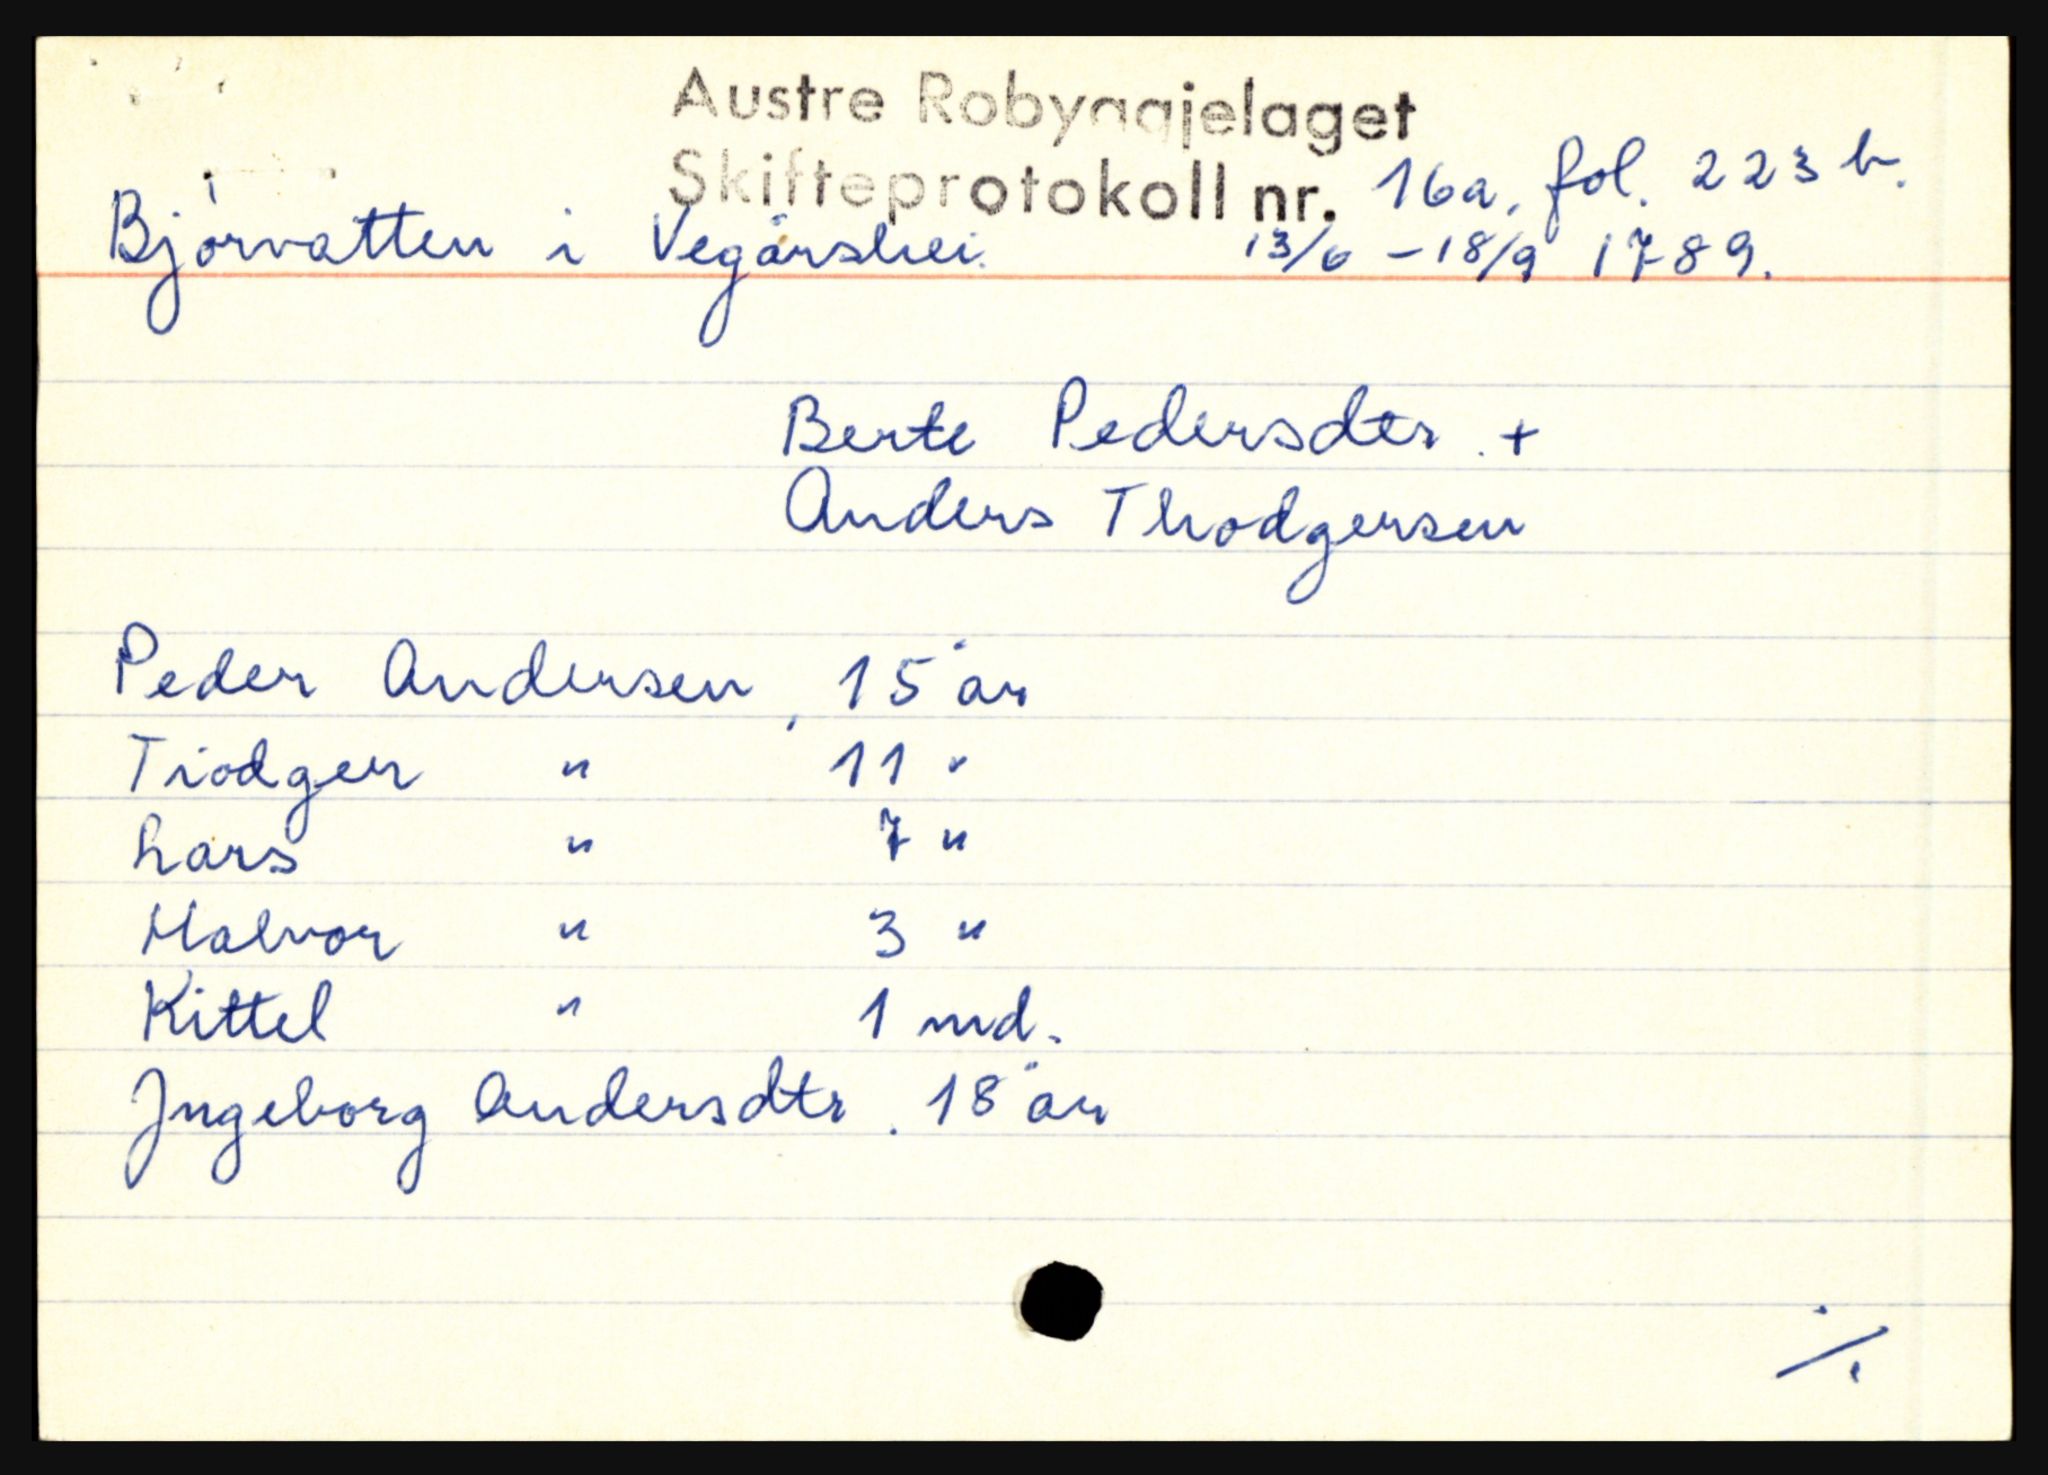 Austre Robyggjelaget
Skifteprotokoll nr. 16a, fol. 223 b.
Bjorvatten i Vegårshei. 13/6 - 18/9 1789.
Berte Pedersdtr. +
Anders Thodgersen
Peder Andersen, 15 år
Tiodger " 11 "
Lars " 7 "
Halvor " 3 "
Kittel " 1 md.
Jngeborg Andersdtr. 18 år
./.